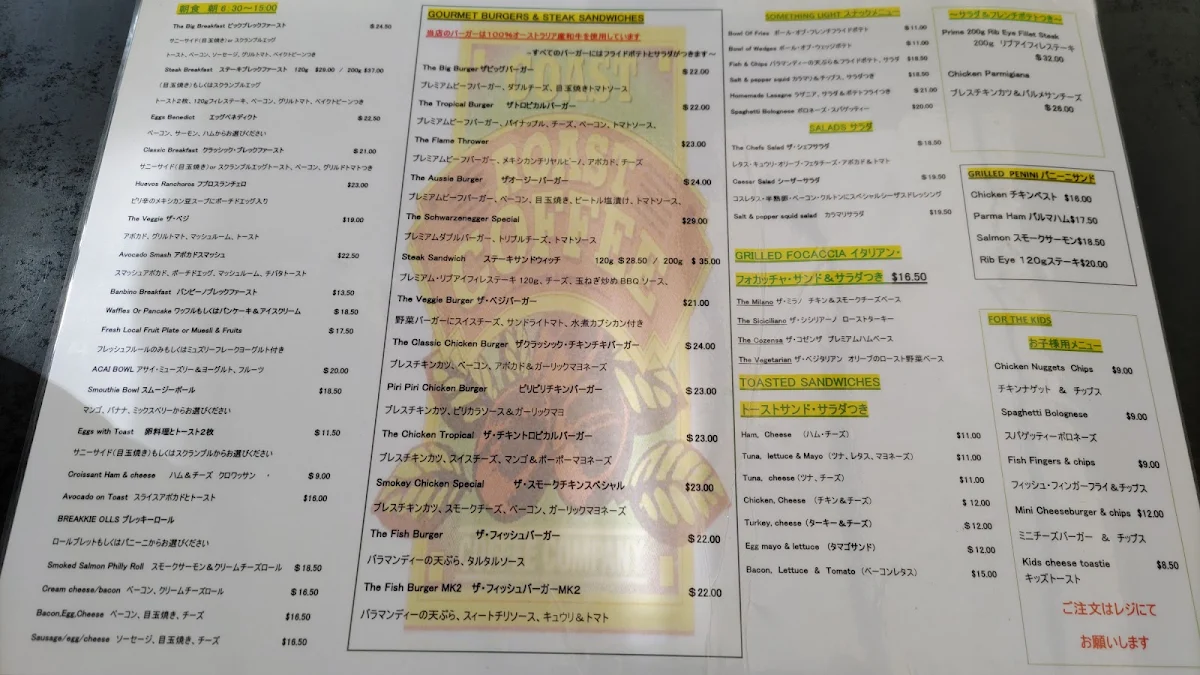 朝食 朝 6.30~15:00
The Big Breakfast ビックブレックファースト $24.50
サニーサイド(目玉焼き) or スクランブルエッグ
トースト、ベーコン、ソーセージ、グリルトマト、ベイクトビーンつき
Steak Breakfast ステーキブレックファースト 120g $29.00 / 200g $37.00
(目玉焼き)もしくはスクランブルエッグ
トースト2枚、120gフィレステーキ、ベーコン、グリルトマト、ベイクトビーンつき
Eggs Benedict エッグベネディクト $22.50
ベーコン、サーモン、ハムからお選びください
Classic Breakfast クラシック・ブレックファースト $21.00
サニーサイド(目玉焼き)or スクランブルエッグトースト、ベーコン、グリルドトマトつき
Huevos Ranchoros フブロスランチェロ $23.00
ピリ辛のメキシカン豆スープにポーチドエッグ入り
The Veggie ザ・ベジ $19.00
アボカド、グリルトマト、マッシュルーム、トースト
Avocado Smash アボカドスマッシュ $22.50
スマッシュアボカド、ポーチドエッグ、マッシュルーム、チバタトースト
Banbino Breakfast バンビーノブレックファースト $13.50
Waffles Or Pancake ワッフルもしくはパンケーキ&アイスクリーム $18.50
Fresh Local Fruit Plate or Muesli & Fruits $17.50
フレッシュフルーのみもしくはミュズリーフレークヨーグルト付き
ACAI BOWL アサイ・ミューズリー&ヨーグルト、フルーツ $20.00
Smouthie Bowl スムージーボール $18.50
マンゴ、バナナ、ミックスベリーからお選びください
Eggs with Toast 卵料理とトースト2枚 $11.50
サニーサイド(目玉焼き)もしくはスクランブルからお選びください
Croissant Ham & cheese ハム&チーズ クロワッサン ・ $9.00
Avocado on Toast スライスアボカドとトースト $16.00
BREAKKIE OLLS ブレッキーロール
ロールブレットもしくはパニーニからお選びください
Smoked Salmon Philly Roll スモークサーモン&クリームチーズロール $18.50
Cream cheese/bacon ベーコン、クリームチーズロール $16.50
Bacon,Egg,Cheese ベーコン、目玉焼き、チーズ $16.50
Sausage/egg/cheese ソーセージ、目玉焼き、チーズ $16.50
GOURMET BURGERS & STEAK SANDWICHES
当店のバーガーは100%オーストラリア産和牛を使用しています
~すべてのバーガーにはフライドポテトとサラダがつきます~
The Big Burger ザビッグバーガー $22.00
プレミアムビーフバーガー、ダブルチーズ、目玉焼きトマトソース
The Tropical Burger ザトロピカルバーガー $22.00
プレミアムビーフバーガー、パイナップル、チーズ、ベーコン、トマトソース、
The Flame Thrower $23.00
プレミアムビーフバーガー、メキシカンチリヤルピーノ、アボカド、チーズ
The Aussie Burger ザオージーバーガー $24.00
プレミアムビーフバーガー、ベーコン、目玉焼き、ビートル塩漬け、トマトソース、
The Schwarzenegger Special $29.00
プレミアムダブルバーガー、トリプルチーズ、トマトソース
Steak Sandwich ステーキサンドウィッチ 120g $28.50 / 200g $35.00
プレミアム・リブアイフィレステーキ120g、チーズ、玉ねぎ炒めBBQソース、
The Veggie Burger ザ・ベジバーガー $21.00
野菜バーガーにスイスチーズ、サンドライトマト、水煮カプシカン付き
The Classic Chicken Burger ザクラッシック・チキンチキバーガー $24.00
ブレスチキンカツ、ベーコン、アボカド&ガーリックマヨネーズ
Piri Piri Chicken Burger ピリピリチキンバーガー $23.00
ブレスチキンカツ、ピリカラソース&ガーリックマヨ
The Chicken Tropical ザ・チキントロピカルバーガー $23.00
ブレスチキンカツ、スイスチーズ、マンゴ&ポーポーマヨネーズ
Smokey Chicken Special ザ・スモークチキンスペシャル $23.00
ブレスチキンカツ、スモークチーズ、ベーコン、ガーリックマヨネーズ
The Fish Burger ザ・フィッシュバーガー $22.00
バラマンディーの天ぷら、タルタルソース
The Fish Burger MK2 ザ・フィッシュバーガーMK2 $22.00
バラマンディーの天ぷら、スィートチリソース、キュウリ&トマト
SOMETHING LIGHT スナックメニュー
Bowl Of Fries ボール・オブ・フレンチフライドポテト $11.00
Bowl of Wedges ボール・オブ・ウェッジポテト $11.00
Fish & Chips バラマンディーの天ぷら&フライドポテト、サラダ $18.50
Salt & pepper squid カラマリ&チップス、サラダつき $18.50
Homemade Lasagne ラザニア、サラダ&ポテトフライつき $21.00
Spaghetti Bolognese ボロネーズ・スパゲッティー $20.00
SALADS サラダ
The Chefs Salad ザ・シェフサラダ $18.50
レタス・キュウリ・オリーブ・フェタチーズ・アボカド&トマト
Caesar Salad シーザーサラダ $19.50
コスレタス・半熟卵・ベーコン・クルトンにスペシャルシーザスドレッシング
Salt & pepper squid salad カラマリサラダ $19.50
GRILLED FOCACCIA イタリアン・
フォカッチャ・サンド&サラダつき $16.50
The Milano ザ・ミラノ チキン&スモークチーズベース
The Siciciliano ザ・シシリアーノ ローストターキー
The Cozensa ザ・コゼンザ プレミアムハムベース
The Vegetarian ザ・ベジタリアン オリーブのロースト野菜ベース
TOASTED SANDWICHES
トーストサンド・サラダつき
Ham, Cheese (ハム・チーズ) $11.00
Tuna, lettuce & Mayo (ツナ、レタス、マヨネーズ) $11.00
Tuna, cheese (ツナ、チーズ) $11.00
Chicken, Cheese (チキン&チーズ) $12.00
Turkey, cheese (ターキー&チーズ) $12.00
Egg mayo & lettuce (タマゴサンド) $12.00
Bacon, Lettuce & Tomato (ベーコンレタス) $15.00
~サラダ&フレンチポテトつき~
Prime 200g Rib Eye Fillet Steak
200g リブアイフィレステーキ
$32.00
Chicken Parmigiana
ブレスチキンカツ&パルメサンチーズ
$26.00
GRILLED PENINI パニーニサンド
Chicken チキンペスト $16.00
Parma Ham パルマハム $17.50
Salmon スモークサーモン $18.50
Rib Eye 120gステーキ $20.00
FOR THE KIDS
お子様用メニュー
Chicken Nuggets Chips $9.00
チキンナゲット & チップス
Spaghetti Bolognese $9.00
スパゲッティーボロネーズ
Fish Fingers & chips $9.00
フィッシュ・フィンガーフライ&チップス
Mini Cheeseburger & chips $12.00
ミニチーズバーガー & チップス
Kids cheese toastie $8.50
キッズトースト
ご注文はレジにて
お願いします
TOAST
ROAST
COFFEE
COMPANY